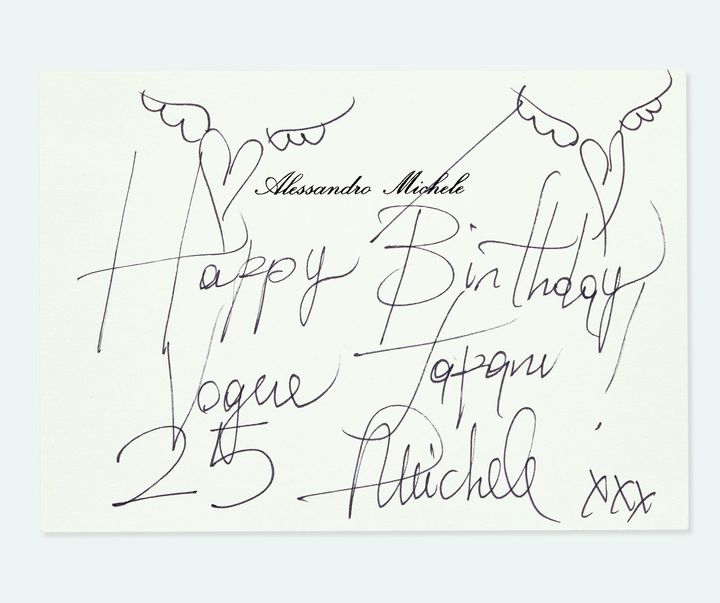 Alessandro Michele
Happy Birthday
Vogue Japan !
25 Michele xxx